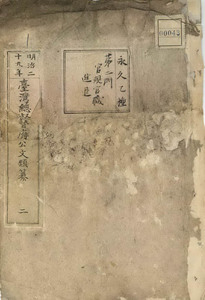 永久乙種
第二門
官規官職
進退
明治二
十九年
臺灣總督府公文類纂
二